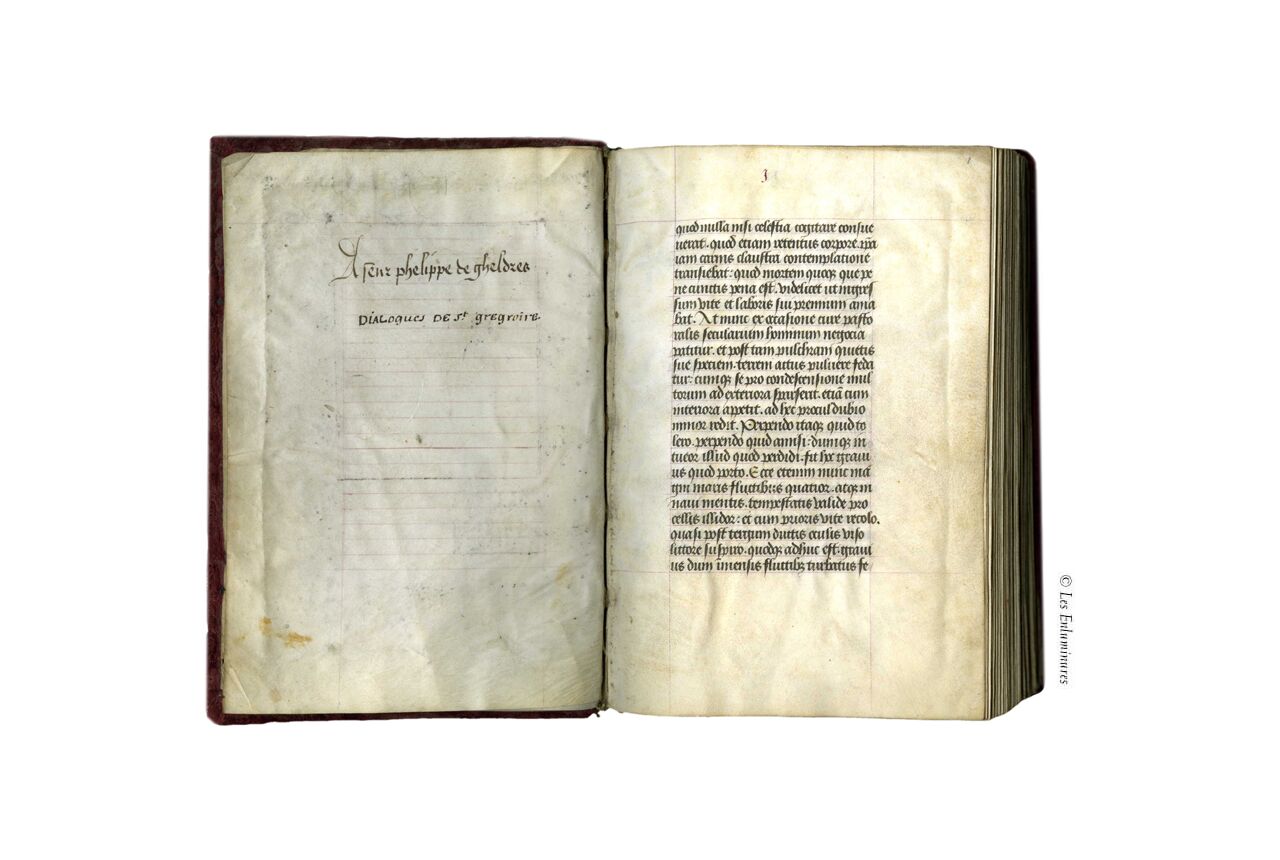 A seur phelippe de gheldres
DIALOGUES DE St gregroire
J
quod nulla nisi celestia cogitare consue
uerat. quod etiam retentus corpore. ip̄a
iam carnis claustra contemplatione
transiebat: quod mortem quoqꝫ que pe
ne cunctis pena est. videlicet ut ingres
sum vite et laboris sui premium ama
bat. At nunc ex occasione cure pasto
ralis secularium hominum negocia
patitur. et post tam pulchram quietis
sue speciem. terreni actus puluere feda
tur: cumqꝫ se pro condescensione mul
torum ad exteriora sparserit. etiā cum
interiora appetit. ad hec procul dubio
minor redit. Perpendo itaqꝫ quid to
lero. perpendo quid amisi: dumqꝫ in
tueor illud quod perdidi. fit hoc graui
us quod porto. Ecce etenim nunc ma
gni maris fluctibus quatior. atqꝫ in
naui mentis. tempestatis valide pro
cellis illidor: et cum prioris vite recolo.
quasi post tergum ductis oculis viso
littore suspiro. quodqꝫ adhuc est graui
us dum īmensis fluctibꝫ turbatus fe
© Les Enluminures